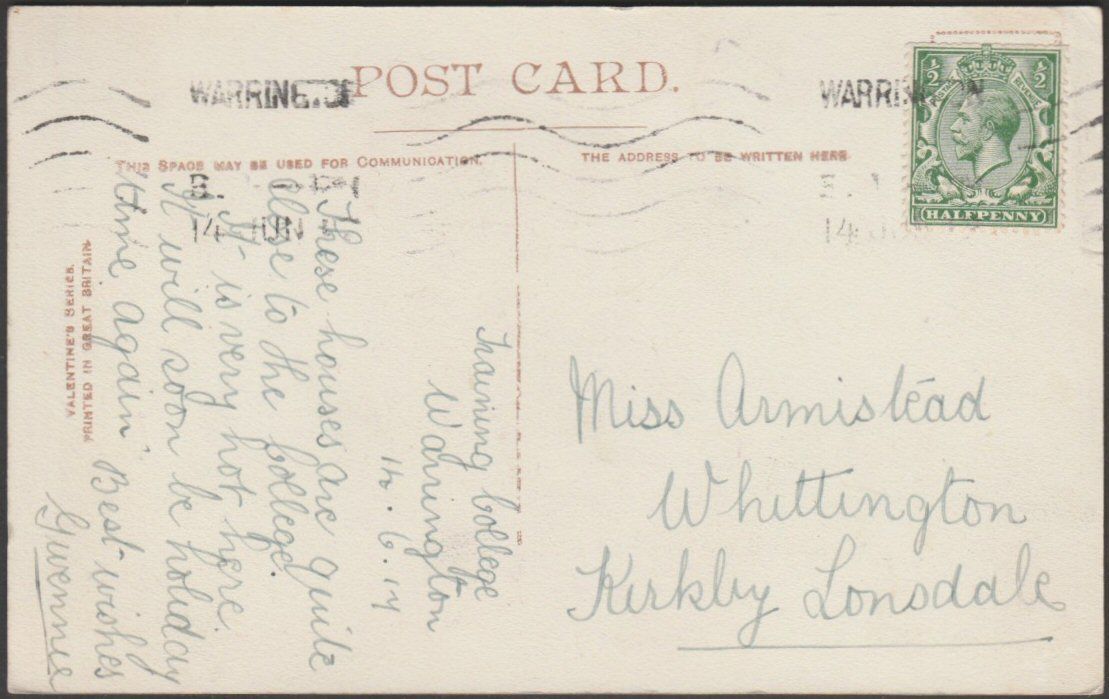 POST CARD.
THIS SPACE MAY BE USED FOR COMMUNICATION.
THE ADDRESS TO BE WRITTEN HERE
WARRINGTON
14 JUN
WARRIN
14
½ ½
POSTAGE REVENUE
HALFPENNY
VALENTINE'S SERIES.
PRINTED IN GREAT BRITAIN.
Training College
Warrington
14. 6. 14
These houses are quite
close to the College.
It is very hot here.
It will soon be holiday
time again. Best wishes
Gwennie
Miss Armistead
Whittington
Kirkby Lonsdale